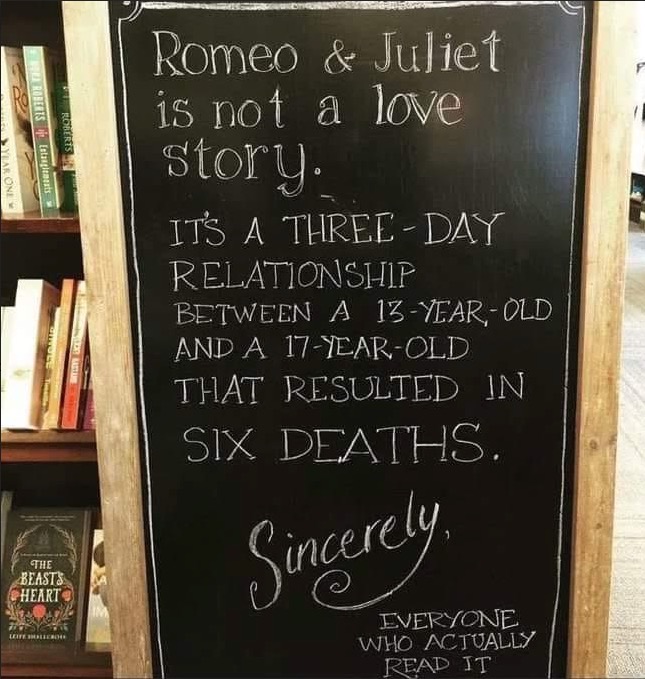 Romeo & Juliet
is not a love
story.
IT'S A THREE-DAY
RELATIONSHIP
BETWEEN A 13-YEAR-OLD
AND A 17-YEAR-OLD
THAT RESULTED IN
SIX DEATHS.
Sincerely,
EVERYONE
WHO ACTUALLY
READ IT
NORA ROBERTS
Entanglements
ROBERTS
YEAR ONE
THE
BEAST'S
HEART
LEIFE SHALLCROSS